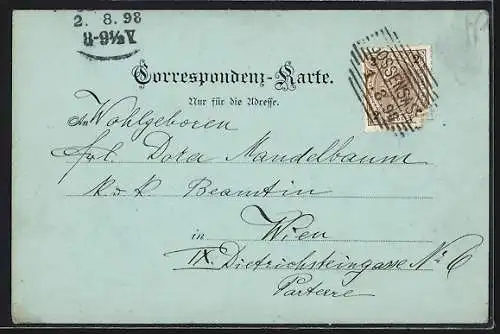 2. 8. 98
8-9½V
Correspondenz-Karte.
Nur für die Adresse.
An Wohlgeboren
Frl. Dora Mandelbaum
k. u. k. Beamtin
in Wien
IX. Dietrichsteingasse No 6
Parterre